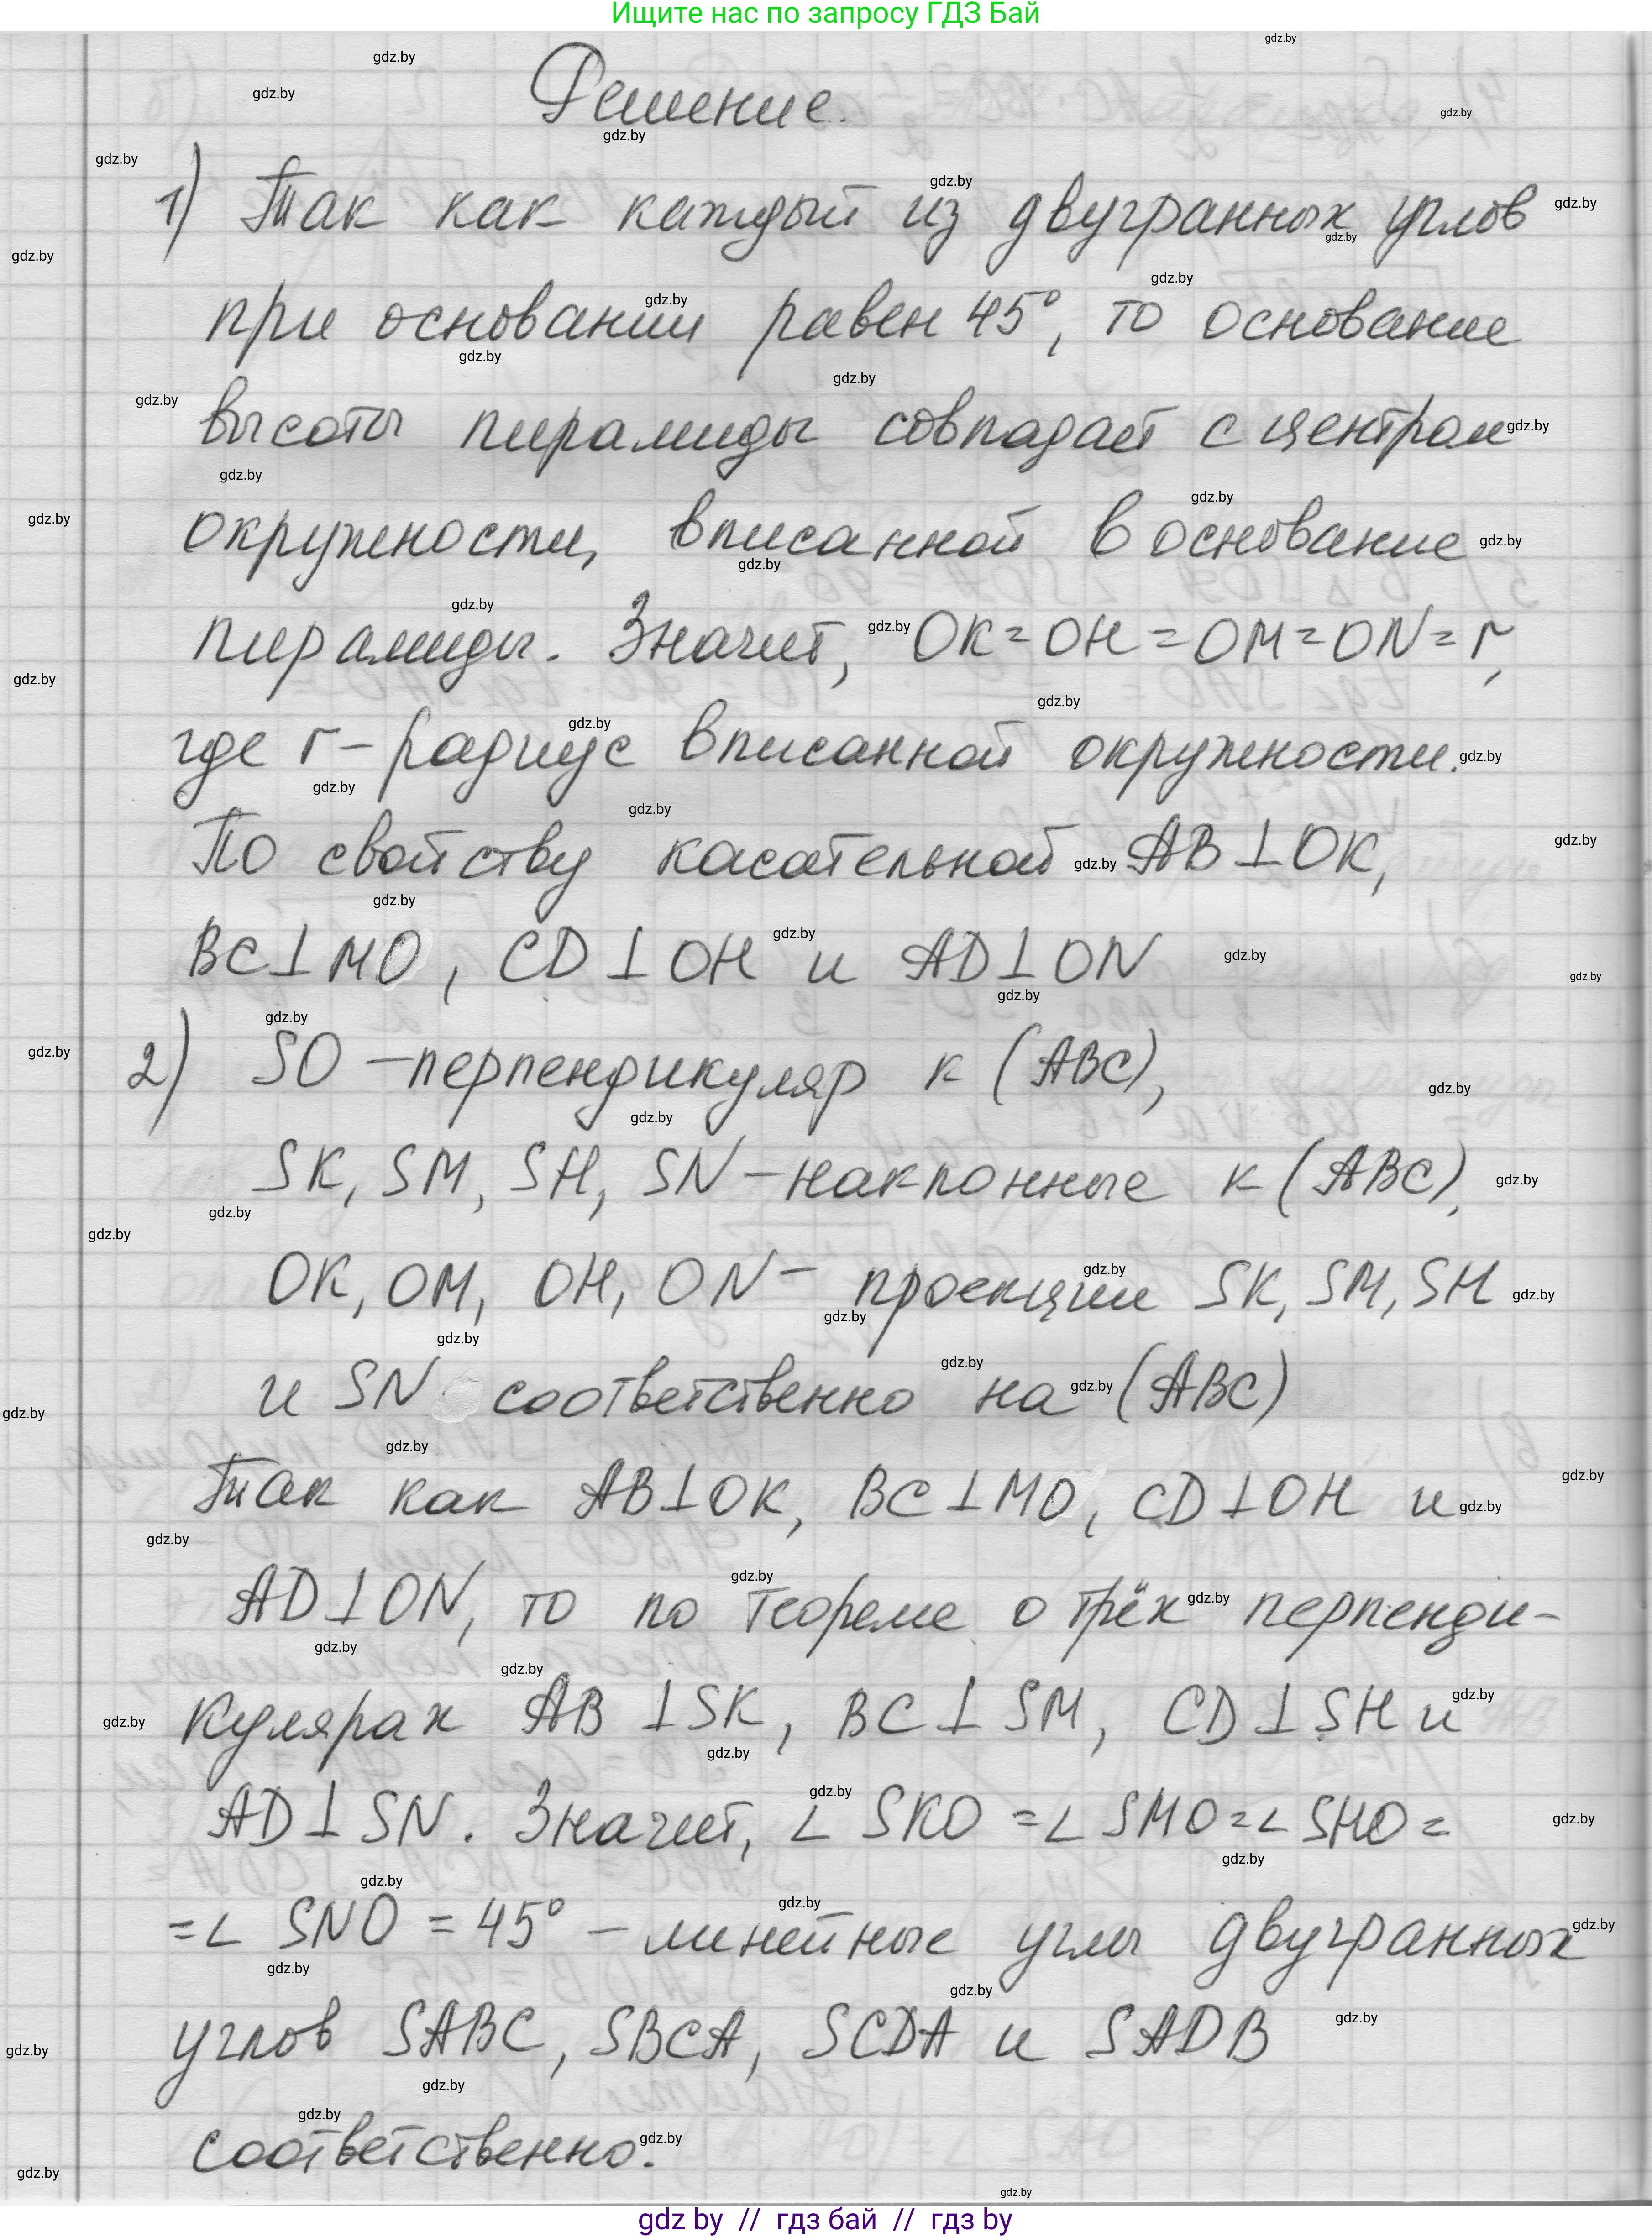 Ищите нас по запросу ГДЗ Бай
Решение.
1) Так как каждый из двугранных углов
при основании равен 45°, то основание
высоты пирамиды совпадает с центром
окружности, вписанной в основание
пирамиды. Значит, OK=OH=OM=ON=r,
где r – радиус вписанной окружности.
По свойству касательной AB⊥OK,
BC⊥MO, CD⊥OH и AD⊥ON
2) SO – перпендикуляр к (ABC),
SK, SM, SH, SN – наклонные к (ABC),
OK, OM, OH, ON – проекции SK, SM, SH
и SN соответственно на (ABC)
Так как AB⊥OK, BC⊥MO, CD⊥OH и
AD⊥ON, то по теореме о трёх перпенди-
кулярах AB⊥SK, BC⊥SM, CD⊥SH и
AD⊥SN. Значит, ∠SKO=∠SMO=∠SHO=
=∠SNO=45° – линейные углы двугранных
углов SABC, SBCA, SCDA и SADB
соответственно.
gdz by // гдз бай // гдз by